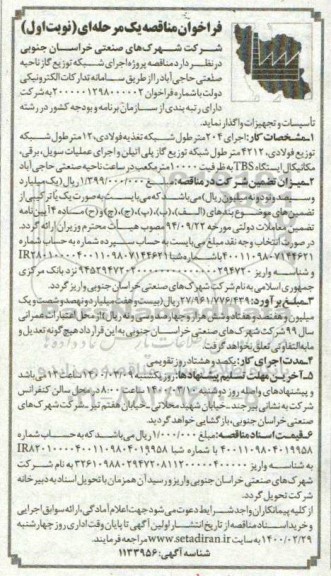 فراخوان مناقصه یک مرحله‌ای (نوبت اول)
شرکت شهرک‌های صنعتی خراسان جنوبی
در نظر دارد مناقصه پروژه اجرای شبکه توزیع گاز ناحیه
صنعتی حاجی آباد را از طریق سامانه تدارکات الکترونیکی
دولت با شماره فراخوان ۲۰۰۰۰۰۱۲۹۸۰۰۰۰۰۲ به شرکت
دارای رتبه بندی از سازمان برنامه و بودجه کشور در رشته
تأسیسات و تجهیزات واگذار نماید.
۱-مشخصات کار: اجرای ۲۰۴ متر طول شبکه تغذیه فولادی، ۱۲ متر طول شبکه
توزیع فولادی، ۴۲۱۲ متر طول شبکه توزیع گاز پلی اتیلن و اجرای عملیات سویل، برقی،
مکانیکال ایستگاه TBS به ظرفیت ۱۰۰۰۰ متر مکعب در ساعت ناحیه صنعتی حاجی آباد
۲-میزان تضمین شرکت در مناقصه: مبلغ ۱/۳۹۹/۰۰۰/۰۰۰ ریال (یک میلیارد
و سیصد و نود و نه میلیون ریال) می‌باشد که می‌بایست به صورت یک یا ترکیبی از
تضمین‌های موضوع بندهای (الف)، (ب)، (پ)، (ج)، (چ)، و (ح) ماده ۴ آیین نامه
تضمین معاملات دولتی مورخه ۹۴/۰۹/۲۲ مصوب هیأت محترم وزیران ارائه گردد.
در صورت انتخاب وجه نقد مبلغ می‌بایست به حساب سپرده شماره به حساب شماره
۴۰۰۱۱۰۹۸۰۷۱۴۴۶۲۱ با شماره شبا IR۲۸۰۱۰۰۰۰۴۰۰۱۱۰۹۸۰۷۱۴۴۶۲۱
و شناسه واریز نزد بانک مرکزی
جمهوری اسلامی به نام شرکت شهرک‌های صنعتی خراسان جنوبی واریز گردد.
۳-مبلغ برآورد: ۲۷/۹۶۱/۷۷۶/۴۳۹ ریال (بیست و هفت میلیارد و نهصد و شصت و یک
میلیون و هفتصد و هفتاد و شش هزار و چهارصد و سی و نه ریال) از محل اعتبارات عمرانی
سال ۹۹ شرکت شهرک‌های صنعتی خراسان جنوبی به این قرارداد هیچ گونه تعدیل و
مابه‌التفاوتی تعلق نخواهد گرفت.
۴-مدت اجرای کار: یکصد و هشتاد روز تقویمی
۵-آخرین مهلت تسلیم پیشنهادها: روز یکشنبه ۱۴۰۰/۰۳/۰۹ ساعت ۱۴ می‌باشد
و پیشنهادهای واصله روز دوشنبه ۱۴۰۰/۰۳/۱۰ ساعت ۸:۰۰ در محل سالن کنفرانس
شرکت به نشانی بیرجند - خیابان شهید محلاتی - خیابان هفتم تیر - شرکت شهرک‌های
صنعتی خراسان جنوبی، بازگشایی خواهد گردید.
۶-قیمت اسناد مناقصه: مبلغ ۱/۰۰۰/۰۰۰ ریال می‌باشد که به حساب شماره
۴۰۰۱۱۰۹۸۰۴۰۱۹۹۵۸ با شماره شبا IR۸۲۰۱۰۰۰۰۴۰۰۱۱۰۹۸۰۴۰۱۹۹۵۸
به شناسه واریز به نام شرکت
شهرک‌های صنعتی خراسان جنوبی واریز و رسید آن همزمان با تحویل اسناد به دبیرخانه
شرکت تحویل گردد.
از کلیه پیمانکاران واجد شرایط دعوت می‌شود جهت اعلام آمادگی، ارائه سوابق اجرایی
و خرید اسناد مناقصه از تاریخ انتشار اولین آگهی تا پایان وقت اداری روز چهارشنبه
۱۴۰۰/۰۲/۲۹ به سایت www.setadiran.ir مراجعه فرمایند.
شناسه آگهی: ۱۱۳۳۹۵۶